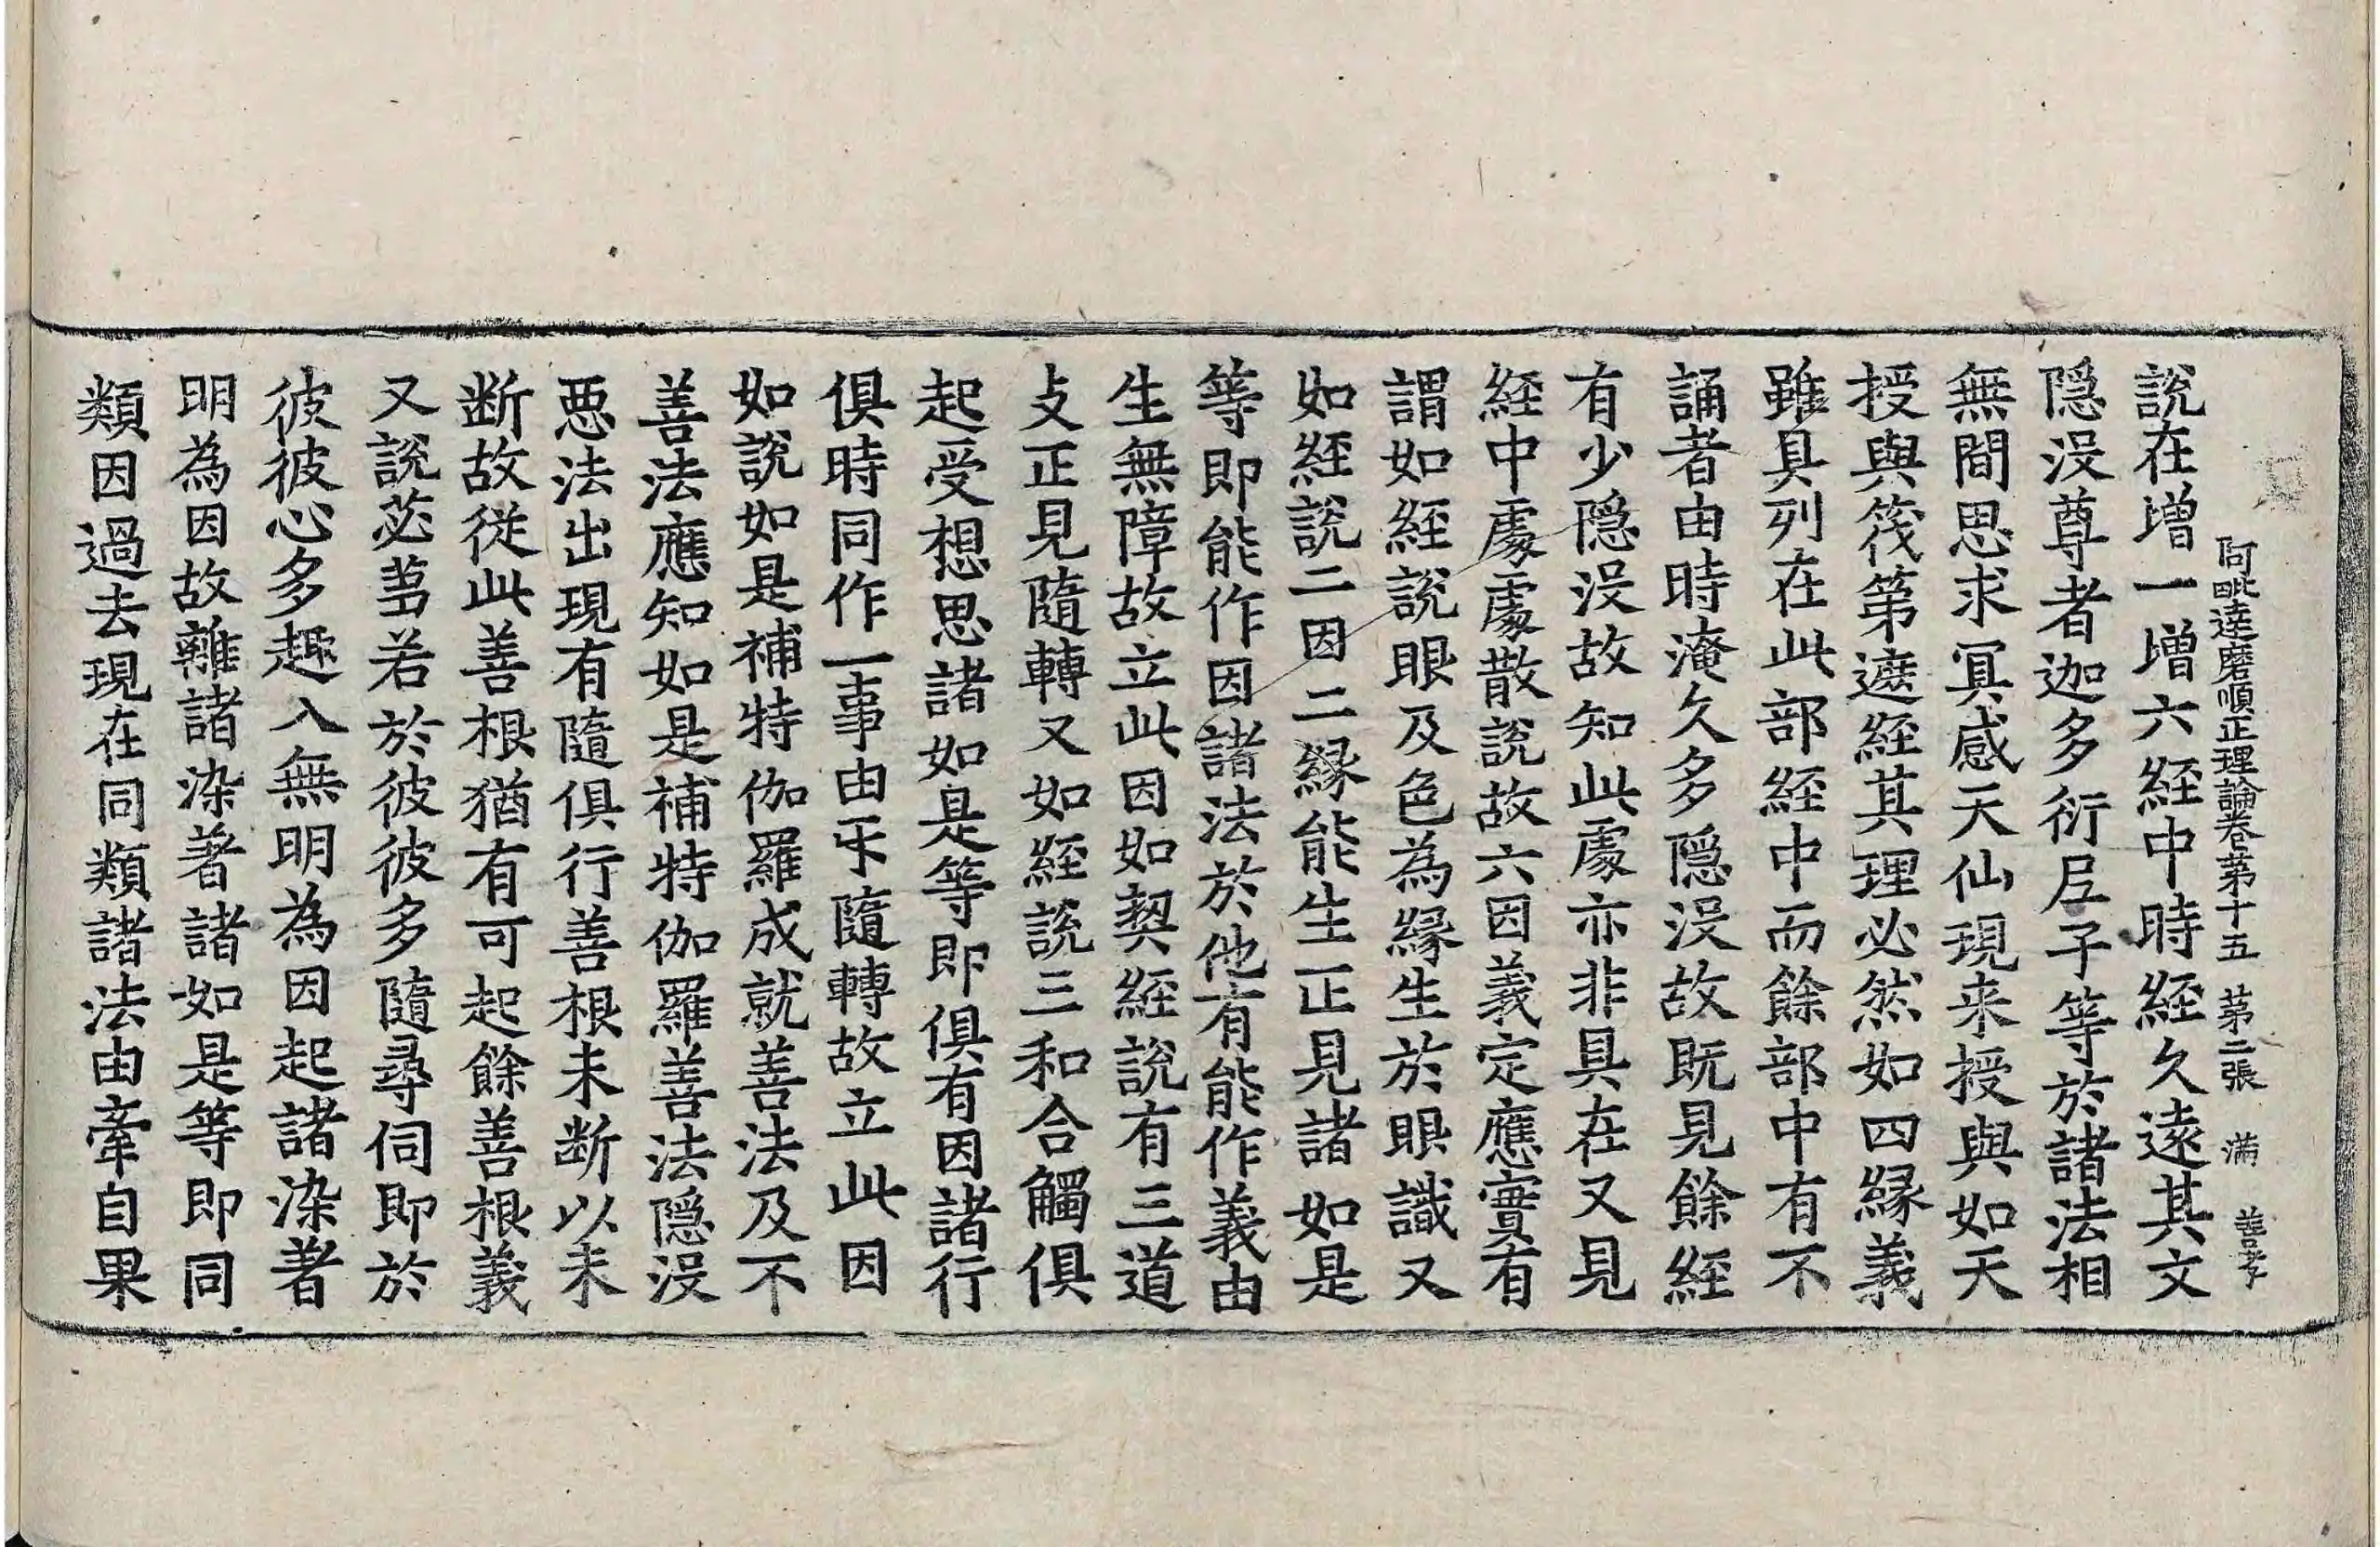 阿毗達磨順正理論卷第十五　第二張　滿　善孝
說在增一增六經中時經久遠其文
隱没尊者迦多衍尼子等於諸法相
無間思求冥感天仙現来授與如天
授與筏第遮經其理必然如四緣義
雖具列在此部經中而餘部中有不
誦者由時淹久多隱没故既見餘經
有少隱没故知此處亦非具在又見
經中處處散說故六因義定應實有
謂如經說眼及色為緣生於眼識又
如經說二因二緣能生正見諸如是
等即能作因諸法於他有能作義由
生無障故立此因如契經說有三道
支正見隨轉又如經說三和合觸俱
起受想思諸如是等即俱有因諸行
俱時同作一事由互隨轉故立此因
如說如是補特伽羅成就善法及不
善法應知如是補特伽羅善法隱没
惡法出現有隨俱行善根未断以未
断故從此善根猶有可起餘善根義
又說苾芻若於彼彼多隨尋伺即於
彼彼心多趣入無明為因起諸染著
明為因故離諸染著諸如是等即同
類因過去現在同類諸法由牽自果